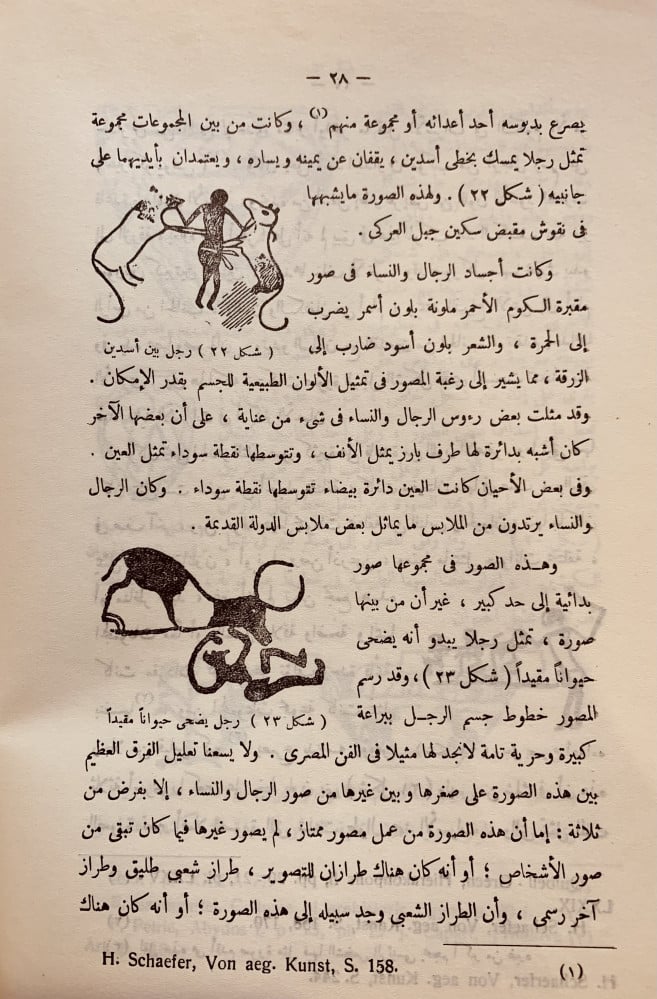 — ٢٨ —
يصرع بدبوسه أحد أعدائه أو مجموعة منهم(١) ، وكانت من بين المجموعات مجموعة
تمثل رجلا يمسك بخطى أسدين ، يقفان عن يمينه ويساره ، ويعتمدان بأيديهما على
جانبيه ( شكل ٢٢ ) . ولهذه الصورة مايشبهها
فى نقوش مقبض سكين جبل العركى .
وكانت أجساد الرجال والنساء فى صور
مقبرة الكوم الأحمر ملونة بلون أسمر يضرب
إلى الحمرة ، والشعر بلون أسود ضارب إلى
( شكل ٢٢ ) رجل بين أسدين
الزرقة ، مما يشير إلى رغبة المصور فى تمثيل الألوان الطبيعية للجسم بقدر الإمكان .
وقد مثلت بعض رءوس الرجال والنساء فى شىء من عناية ، على أن بعضها الآخر
كان أشبه بدائرة لها طرف بارز يمثل الأنف ، وتتوسطها نقطة سوداء تمثل العين .
وفى بعض الأحيان كانت العين دائرة بيضاء تتوسطها نقطة سوداء . وكان الرجال
والنساء يرتدون من الملابس ما يماثل بعض ملابس الدولة القديمة .
وهـذه الصور فى مجموعها صور
بدائية إلى حد كبير ، غير أن من بينها
صورة ، تمثل رجلا يبدو أنه يضحى
حيواناً مقيداً ( شكل ٢٣ ) ، وقد رسم
المصور خطوط جسم الرجـل ببراعة
( شكل ٢٣ ) رجل يضحى حيواناً مقيداً
كبيرة وحرية تامة لانجد لها مثيلا فى الفن المصرى . ولا يسعنا تعليل الفرق العظيم
بين هذه الصورة على صغرها وبين غيرها من صور الرجال والنساء ، إلا بفرض من
ثلاثة : إما أن هذه الصورة من عمل مصور ممتاز ، لم يصور غيرها فيما كان تبقى من
صور الأشخاص ؛ أو أنه كان هناك طرازان للتصوير ، طراز شعبى طليق وطراز
آخر رسمى ، وأن الطراز الشعبى وجد سبيله إلى هذه الصورة ؛ أو أنه كان هناك
(١) H. Schaefer, Von aeg. Kunst, S. 158.